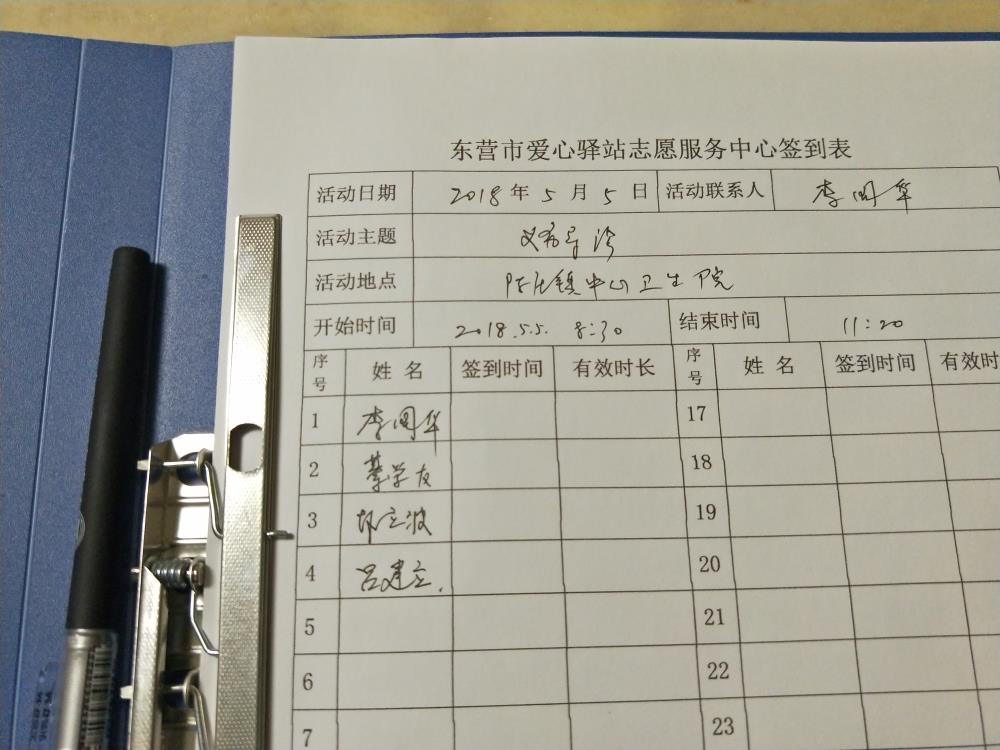 东营市爱心驿站志愿服务中心签到表
活动日期 2018年5月5日 活动联系人 李国华
活动主题 义务导诊
活动地点 陈庄镇中心卫生院
开始时间 2018.5.5. 8:30 结束时间 11:20
序号 姓名 签到时间 有效时长 序号 姓名 签到时间 有效时
1 李国华 17
2 綦学友 18
3 19
4 吕建立. 20
5 21
6 22
7 23